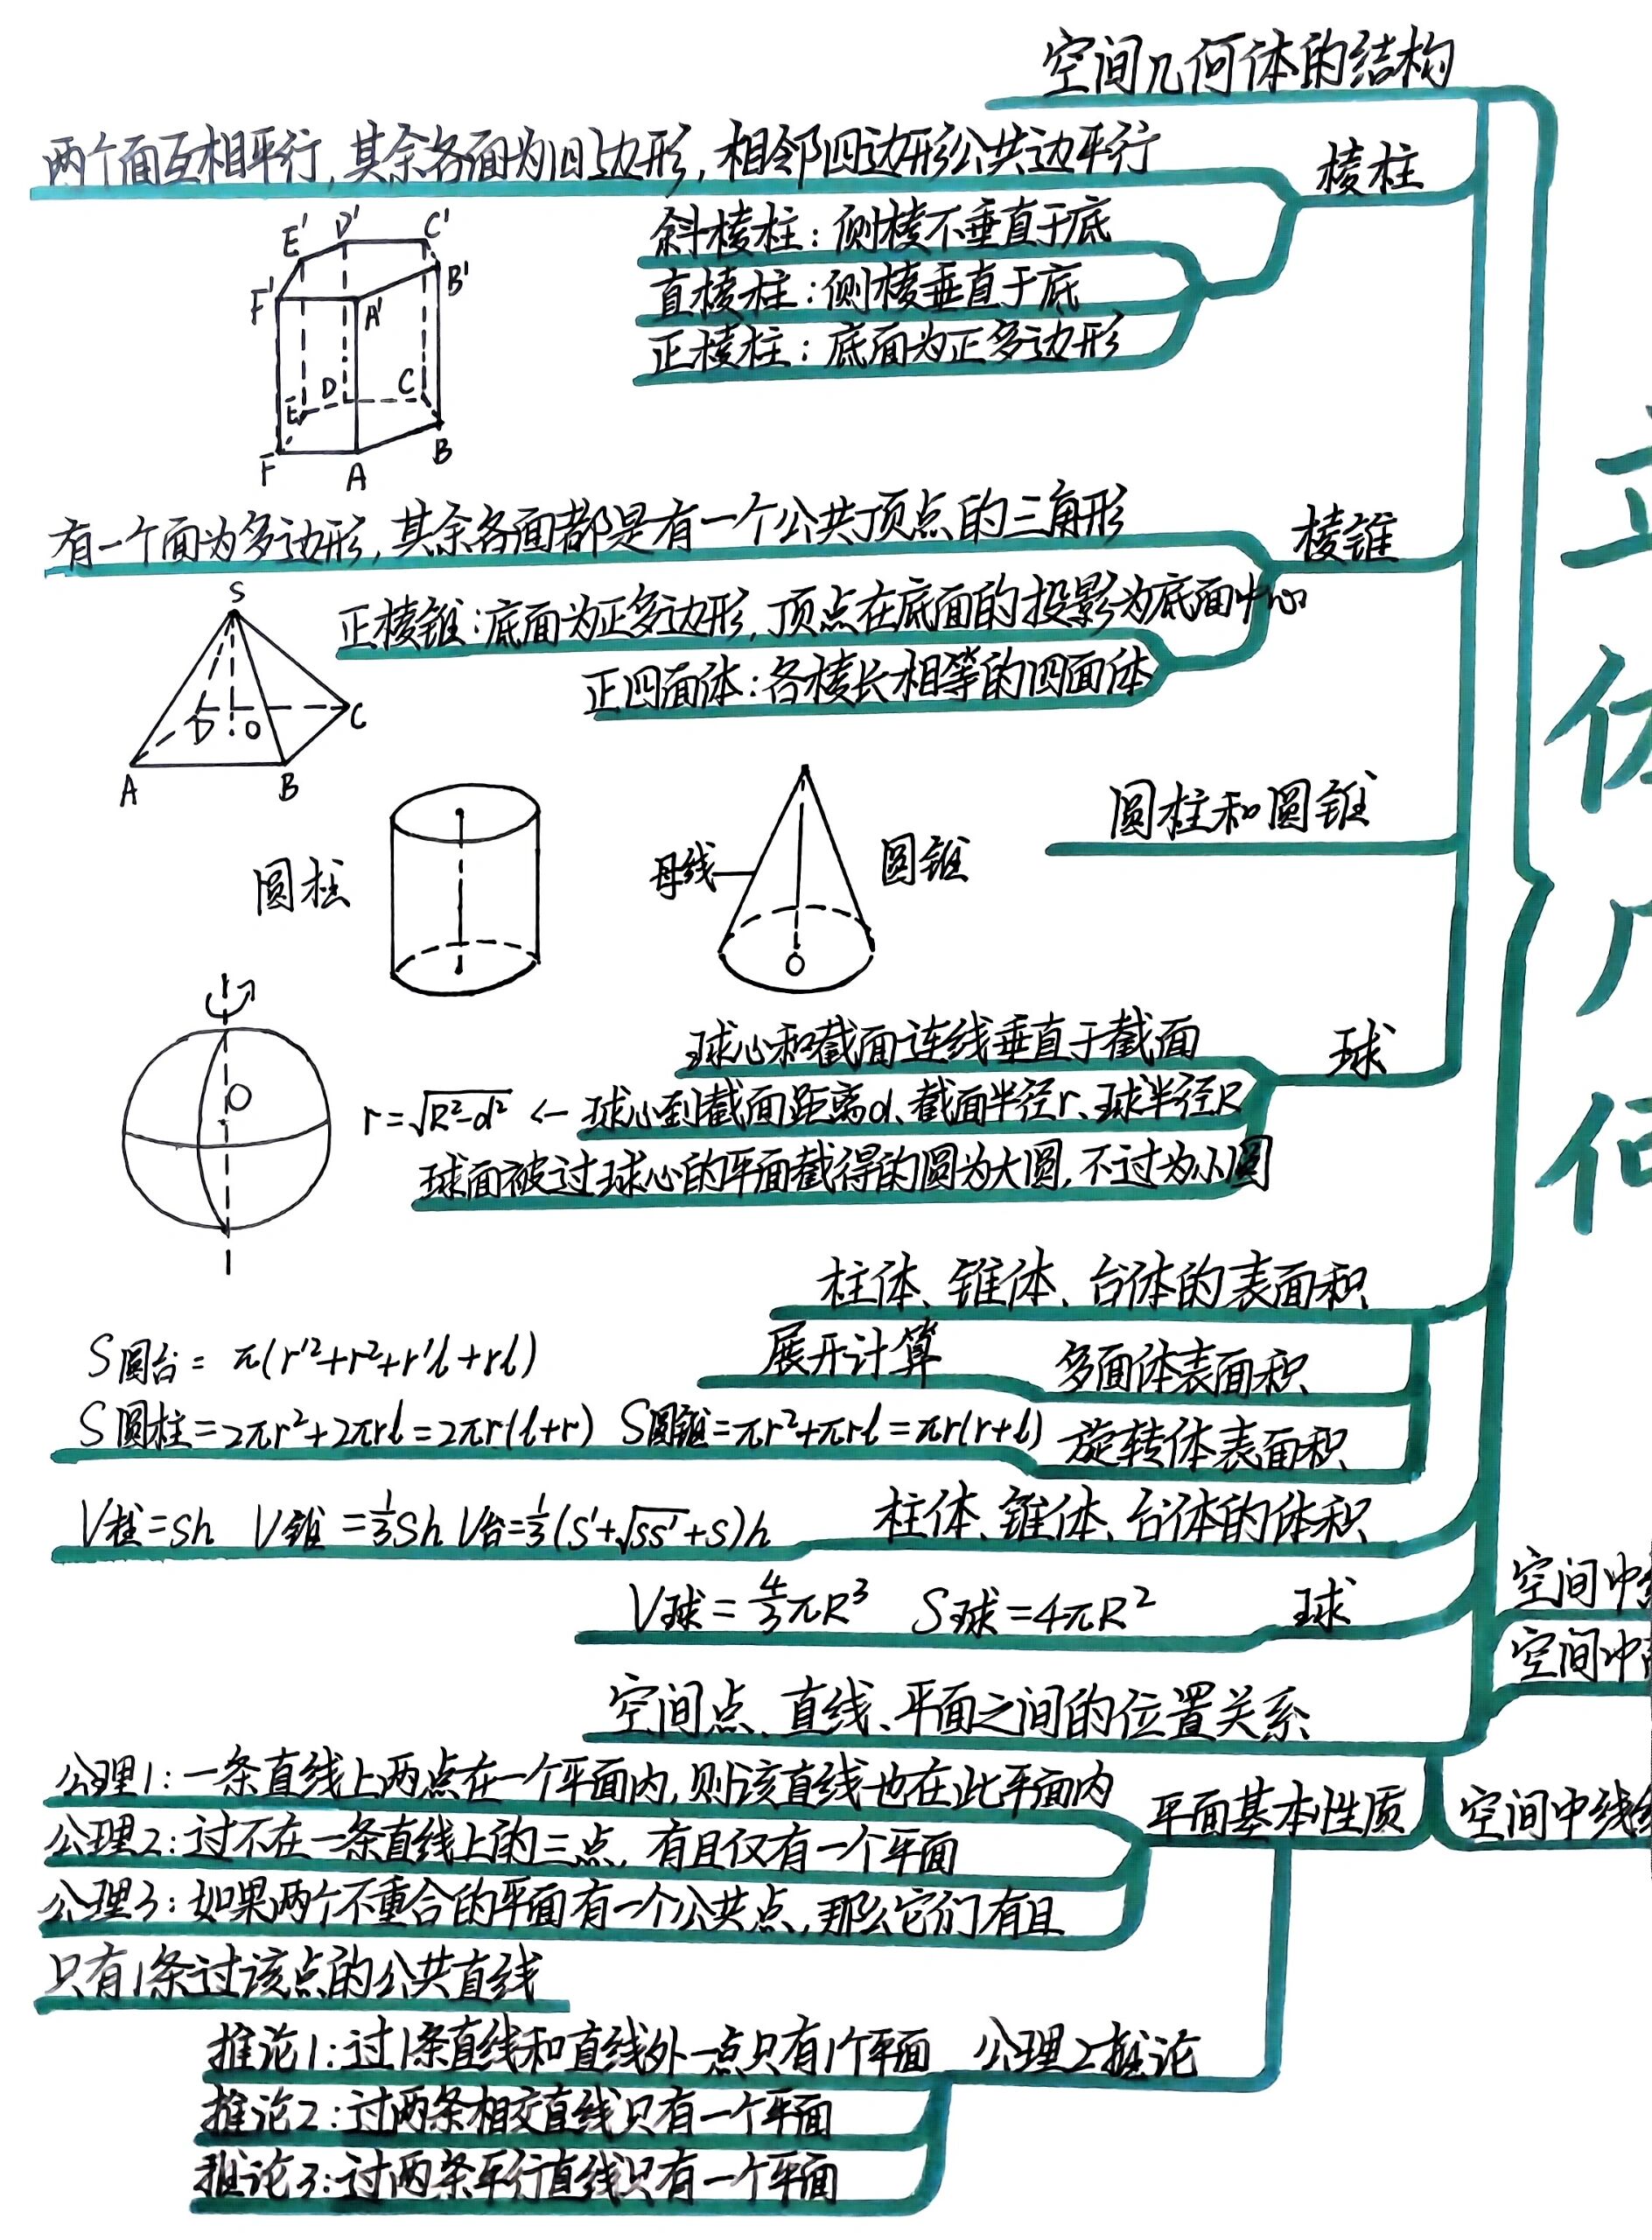 空间几何体的结构
两个面互相平行,其余各面为四边形,相邻四边形公共边平行
棱柱
斜棱柱:侧棱不垂直于底
直棱柱:侧棱垂直于底
正棱柱:底面为正多边形
E' D' C'
F' A' B'
E D C
F A B
有一个面为多边形,其余各面都是有一个公共顶点的三角形
棱锥
正棱锥:底面为正多边形,顶点在底面的投影为底面中心
正四面体:各棱长相等的四面体
S
D O C
A B
圆柱和圆锥
圆柱
母线
圆锥
O
球
球心和截面连线垂直于截面
r=√R²-d² ← 球心到截面距离d、截面半径r、球半径R
球面被过球心的平面截得的圆为大圆,不过为小圆
O
柱体、锥体、台体的表面积
展开计算 多面体表面积
S圆台= π(r'²+r²+r'l+rl)
S圆柱=2πr²+2πrl=2πr(l+r) S圆锥=πr²+πrl=πr(r+l) 旋转体表面积
V柱=Sh V锥=⅓Sh V台=⅓(S'+√SS'+S)h 柱体、锥体、台体的体积
V球=4/3πR³ S球=4πR² 球
空间点、直线、平面之间的位置关系
公理1:一条直线上两点在一个平面内,则该直线也在此平面内
公理2:过不在一条直线上的三点,有且仅有一个平面
公理3:如果两个不重合的平面有一个公共点,那么它们有且
只有1条过该点的公共直线
平面基本性质
推论1:过1条直线和直线外一点只有1个平面 公理2推论
推论2:过两条相交直线只有一个平面
推论3:过两条平行直线只有一个平面
空间中
空间中
空间中线
立
体
几
何